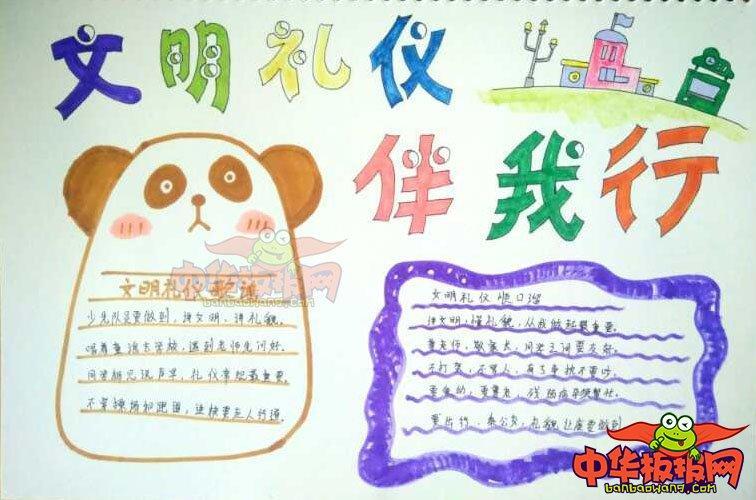 文明礼仪
伴我行
文明礼仪歌谣
少先队员要做到，讲文明、讲礼貌。
唱着童谣去学校，遇到老师先问好。
同学相见说声早，礼仪常规最重要。
不穿操场和跑道，连接要走人行道。
文明礼仪顺口溜
讲文明，懂礼貌，从我做起最重要。
尊老师，敬家长，同学之间要友好。
不打架，不骂人，有了事
要出行，乘公交，礼貌让座要做到
中华板报网
banbaowang.com
中华板报网
banbaowang.com